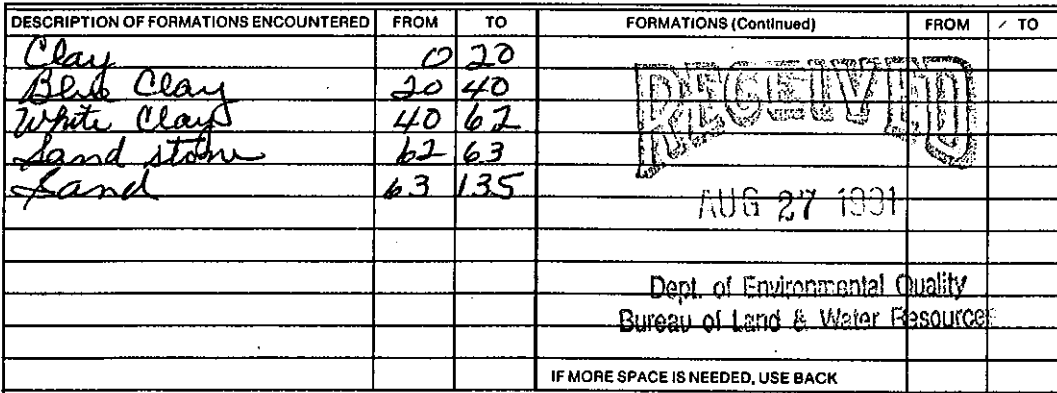 DESCRIPTION OF FORMATIONS ENCOUNTERED FROM TO FORMATIONS (Continued) FROM TO
Clay 0 20
Blue Clay 20 40
White Clay 40 62
Sand stone 62 63
Sand 63 135
RECEIVED
AUG 27 1991
Dept. of Environmental Quality
Bureau of Land & Water Resources
IF MORE SPACE IS NEEDED, USE BACK